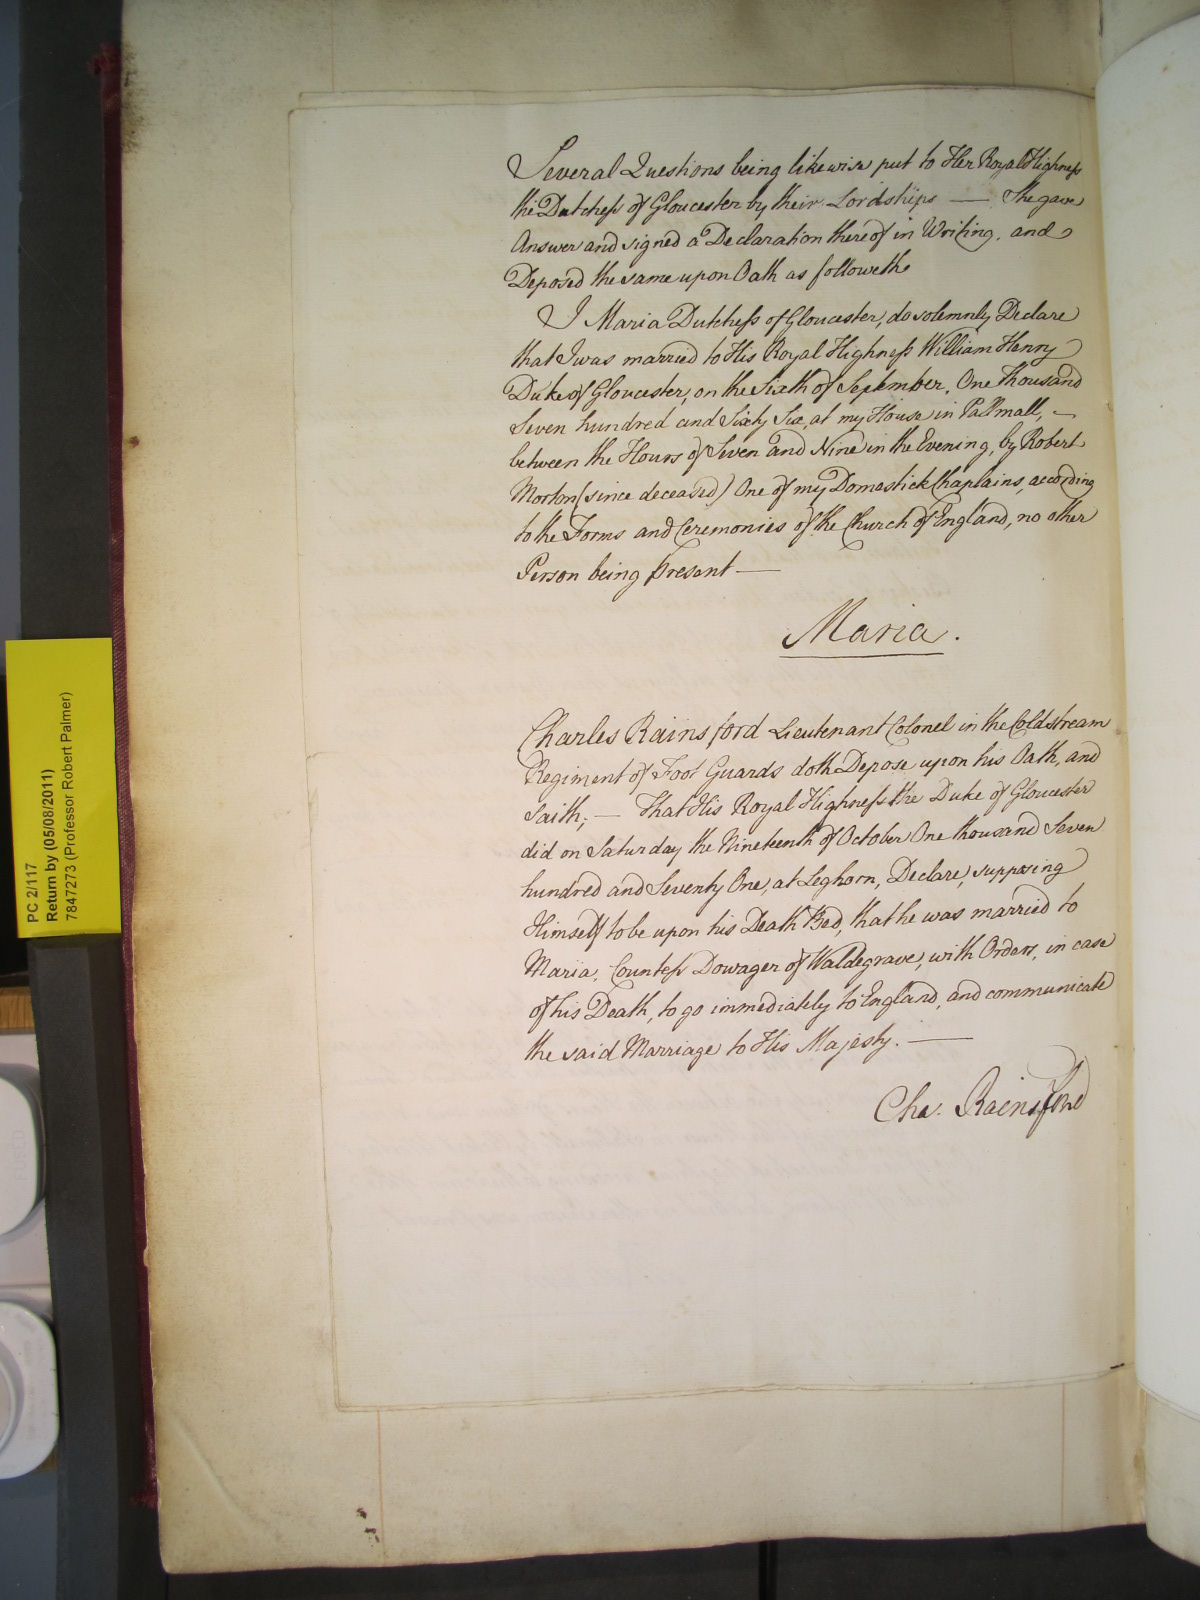 Several Questions being likewise put to Her Royal Highness
the Dutchess of Gloucester by their Lordships — She gave
Answer and signed a Declaration thereof in Writing, and
Deposed the same upon Oath as followeth
I Maria Dutchess of Gloucester, do solemnly Declare
that I was married to His Royal Highness William Henry
Duke of Gloucester, on the Sixth of September, One thousand
Seven hundred and Sixty Six, at my House in Pallmall, —
between the Hours of Seven and Nine in the Evening, by Robert
Morton (since deceased) One of my Domestick Chaplains, according
to the Forms and Ceremonies of the Church of England, no other
Person being present —
Maria.
Charles Rainsford Lieutenant Colonel in the Coldstream
Regiment of Foot Guards doth Depose upon his Oath, and
Saith; — That His Royal Highness the Duke of Gloucester
did on Saturday the Nineteenth of October One thousand Seven
hundred and Seventy One, at Leghorn, Declare, supposing
Himself to be upon his Death Bed, that he was married to
Maria, Countess Dowager of Waldegrave, with Orders, in case
of his Death, to go immediately to England, and communicate
the said Marriage to His Majesty. —
Cha. Rainsford
PC 2/117
Return by (05/08/2011)
7847273 (Professor Robert Palmer)